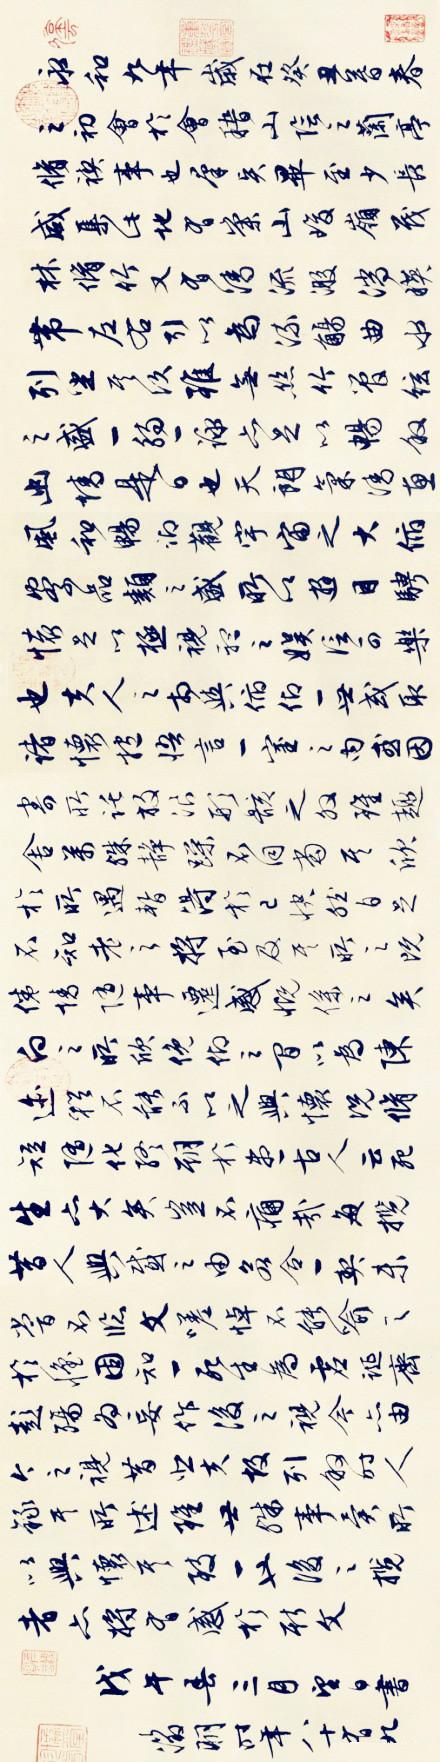 永和九年歲在癸丑暮春
之初會於會稽山陰之蘭亭
脩禊事也群賢畢至少長
咸集此地有崇山峻嶺茂
林脩竹又有清流激湍暎
帶左右引以為流觴曲水
列坐其次雖無絲竹管絃
之盛一觴一詠亦足以暢敘
幽情是日也天朗氣清惠
風和暢仰觀宇宙之大俯
察品類之盛所以遊目騁
懷足以極視聽之娛信可樂
也夫人之相與俯仰一世或取
諸懷抱悟言一室之內或因
寄所託放浪形骸之外雖趣
舍萬殊靜躁不同當其欣
於所遇暫得於己快然自足
不知老之將至及其所之既
倦情隨事遷感慨係之矣
向之所欣俛仰之間以為陳
迹猶不能不以之興懷況脩
短隨化終期於盡古人云死
生亦大矣豈不痛哉每攬
昔人興感之由若合一契未
嘗不臨文嗟悼不能喻之
於懷固知一死生為虛誕齊
彭殤為妄作後之視今亦由
今之視昔悲夫故列敘時人
錄其所述雖世殊事異所
以興懷其致一也後之攬
者亦將有感於斯文
戊午春三月望日書
明時年八十有九